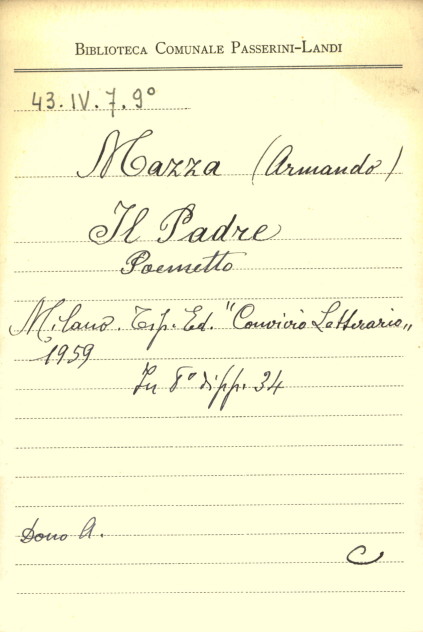 BIBLIOTECA COMUNALE PASSERINI-LANDI
43.IV.7.9°
Mazza (Armando)
Il Padre
Poemetto
Milano. Tip. Ed. "Convivio Letterario„
1959
In 8° di pp. 34
Dono A.
C